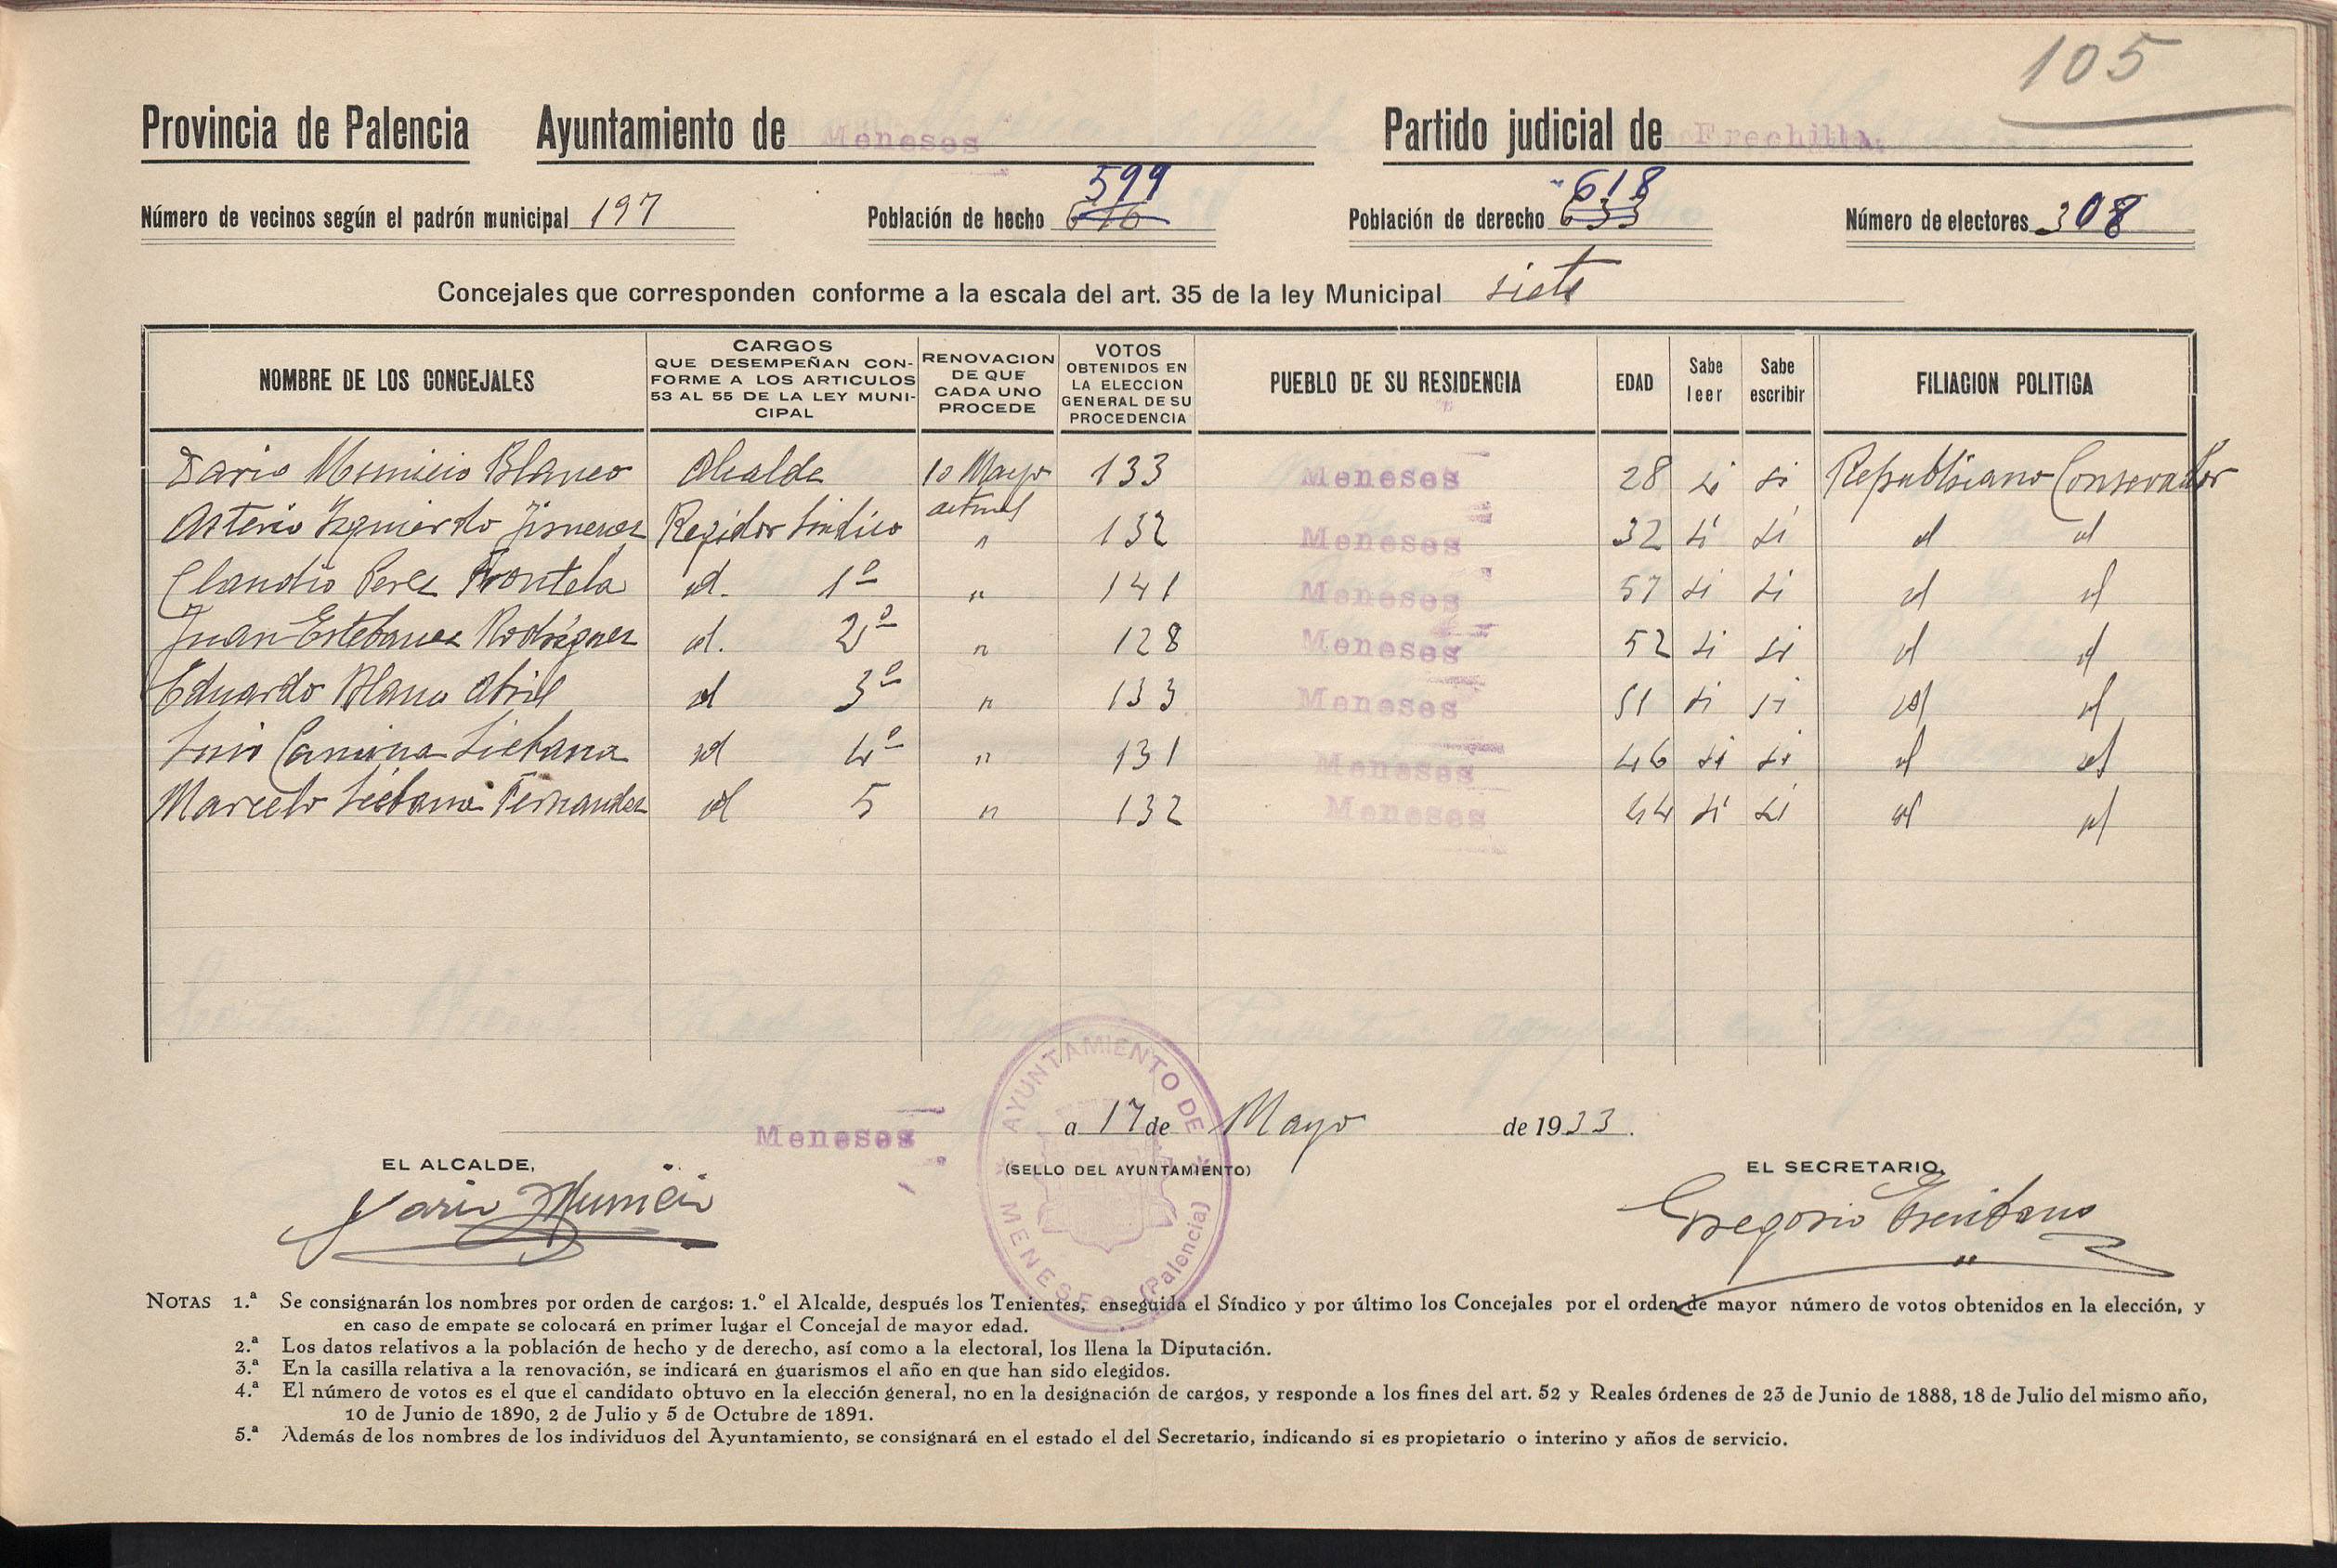 105
Provincia de Palencia Ayuntamiento de Meneses Partido judicial de Frechilla.
Número de vecinos según el padrón municipal 197 Población de hecho 599 Población de derecho 618 Número de electores 308
Concejales que corresponden conforme a la escala del art. 35 de la ley Municipal siete
NOMBRE DE LOS CONCEJALES CARGOS QUE DESEMPEÑAN CONFORME A LOS ARTICULOS 53 AL 55 DE LA LEY MUNICIPAL RENOVACION DE QUE CADA UNO PROCEDE VOTOS OBTENIDOS EN LA ELECCION GENERAL DE SU PROCEDENCIA PUEBLO DE SU RESIDENCIA EDAD Sabe leer Sabe escribir FILIACION POLITICA
Dario Municio Blanco Alcalde 10 Mayo actual 133 Meneses 28 si si Republicano Conservador
Asterio Izquierdo Jimenez Regidor Sindico " 132 Meneses 32 si si id id
Claudio Perez Frontela id. 1º " 141 Meneses 57 si si id id
Juan Estebanez Rodriguez id. 2º " 128 Meneses 52 si si id id
Eduardo Blanco Abril id 3º " 133 Meneses 51 si si id id
Luis Camina Liebana id 4º " 131 Meneses 46 si si id id
Marcelo Liebana Fernandez id 5 " 132 Meneses 44 si si id id
Meneses a 17 de Mayo de 1933.
EL ALCALDE, (SELLO DEL AYUNTAMIENTO) EL SECRETARIO,
AYUNTAMIENTO DE MENESES (Palencia)
Dario Municio Gregorio
NOTAS 1.ª Se consignarán los nombres por orden de cargos: 1.º el Alcalde, después los Tenientes, enseguida el Síndico y por último los Concejales por el orden de mayor número de votos obtenidos en la elección, y
en caso de empate se colocará en primer lugar el Concejal de mayor edad.
2.ª Los datos relativos a la población de hecho y de derecho, así como a la electoral, los llena la Diputación.
3.ª En la casilla relativa a la renovación, se indicará en guarismos el año en que han sido elegidos.
4.ª El número de votos es el que el candidato obtuvo en la elección general, no en la designación de cargos, y responde a los fines del art. 52 y Reales órdenes de 23 de Junio de 1888, 18 de Julio del mismo año,
10 de Junio de 1890, 2 de Julio y 5 de Octubre de 1891.
5.ª Además de los nombres de los individuos del Ayuntamiento, se consignará en el estado el del Secretario, indicando si es propietario o interino y años de servicio.